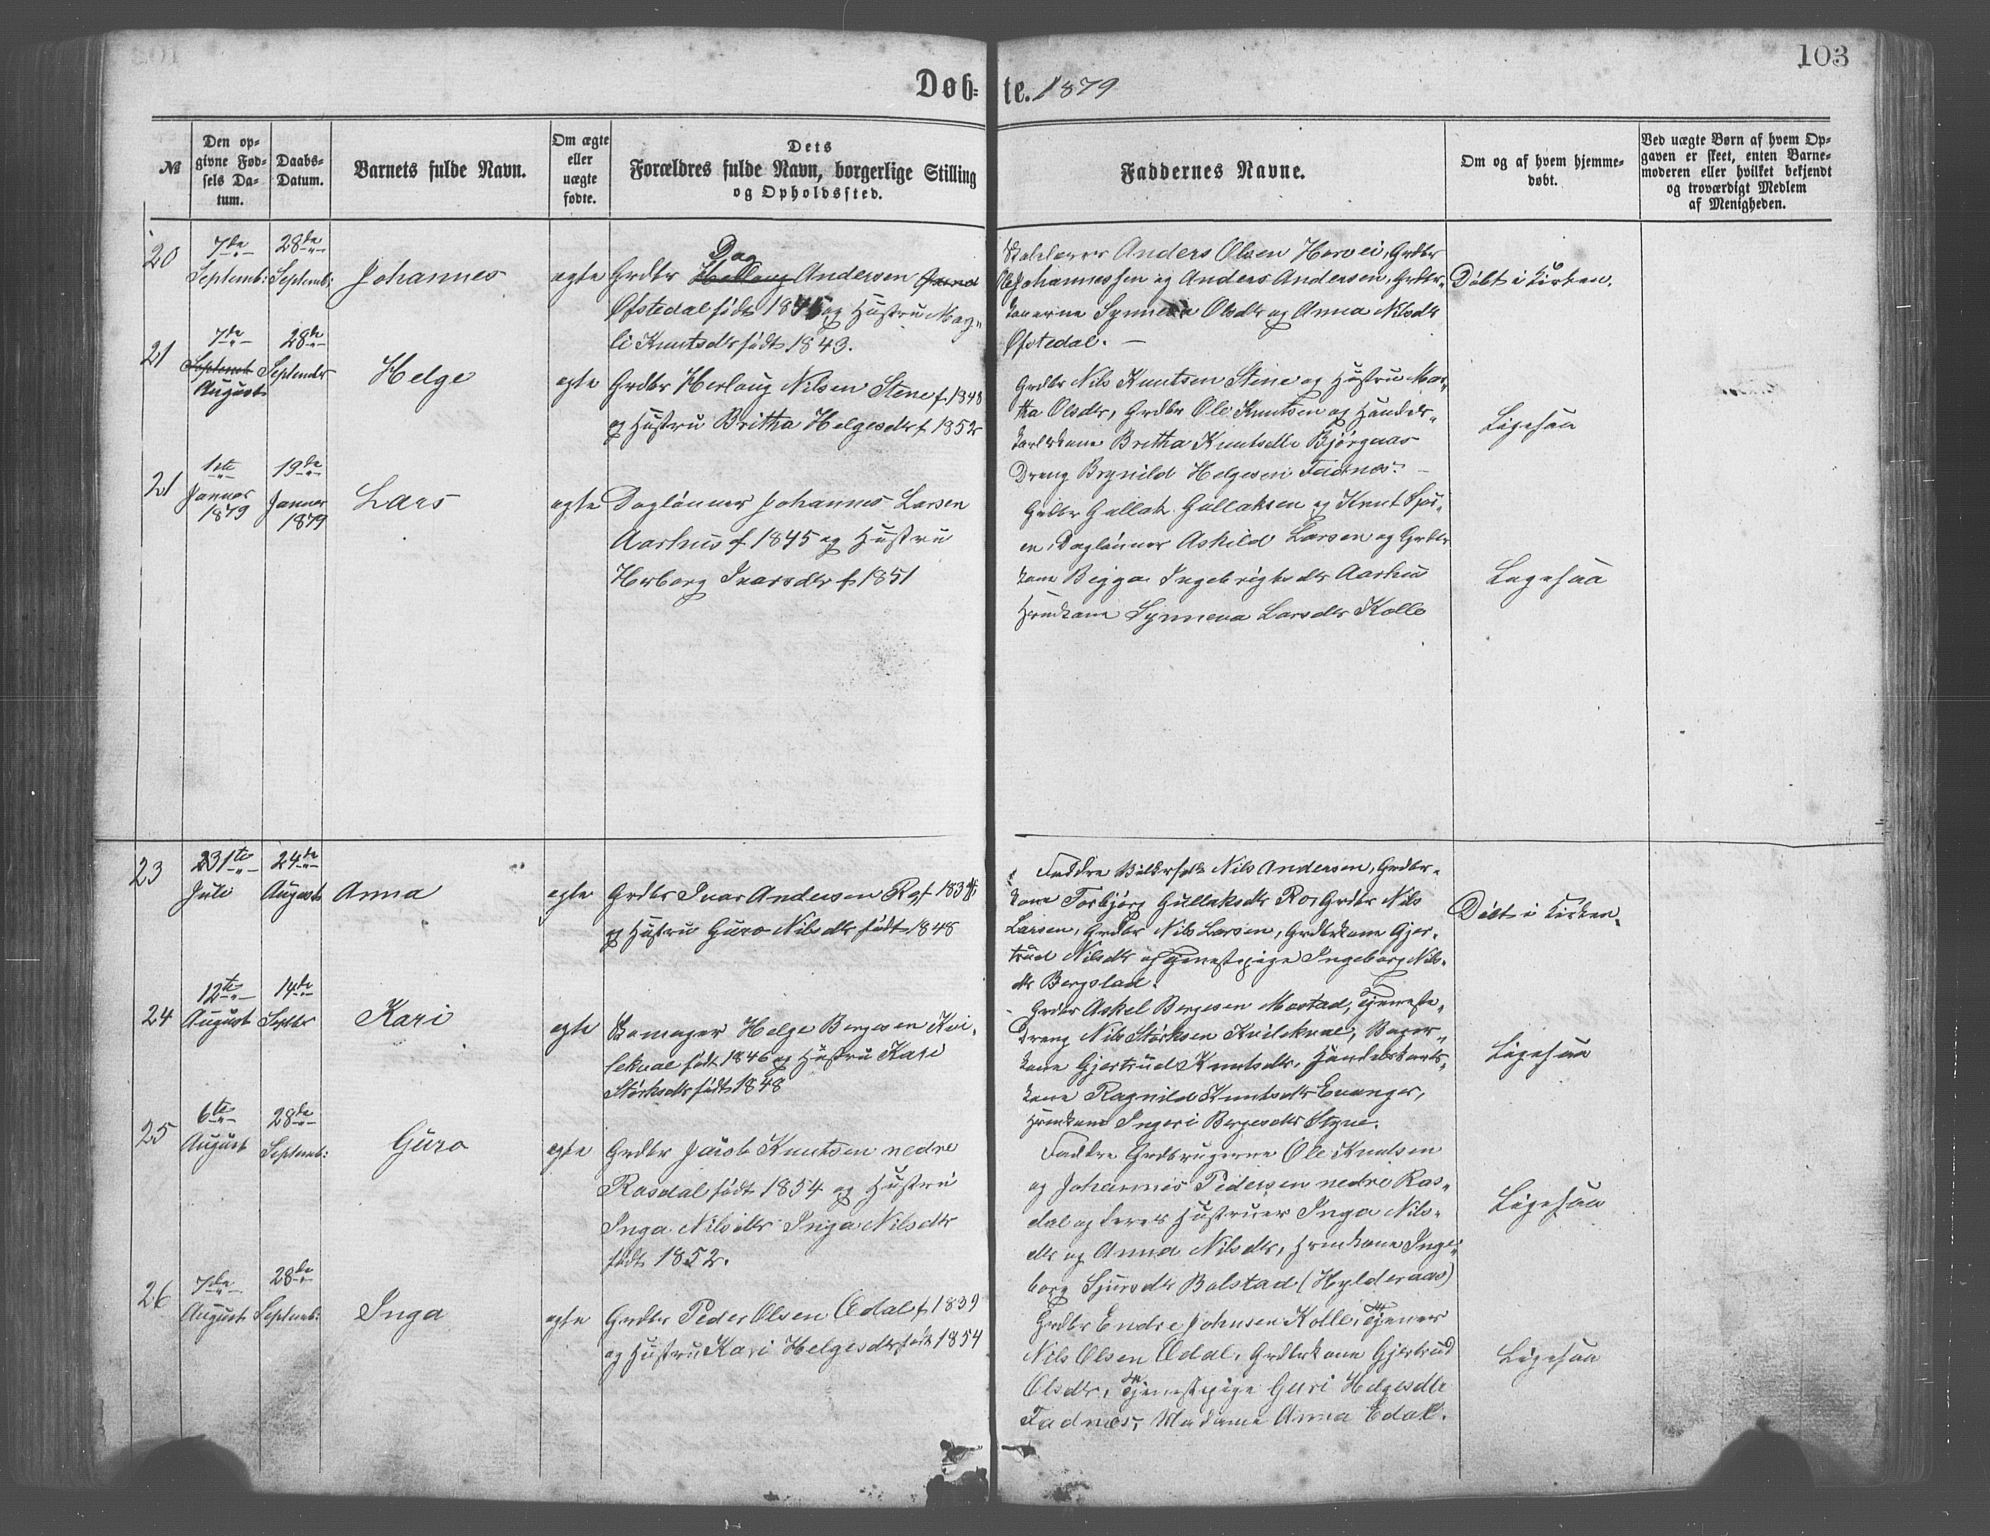 103
Døb= te. 1879
№
Den op-
givne Fød-
sels Da-
tum.
Daabs-
Datum.
Barnets fulde Navn.
Om ægte
eller
uægte
fødte.
Dets
Forældres fulde Navn, borgerlige Stilling
og Opholdssted.
Faddernes Navne.
Om og af hvem hjemme-
døbt.
Ved uægte Børn af hvem Op-
gaven er skeet, enten Barne-
moderen eller hvilket bekjendt
og troværdigt Medlem
af Menigheden.
20
7de
Septemb:
28de
Septemb:
Johannes
ægte
Dag
Grdbr Andersen
Øfstedal født 1845 og Hustru Mag-
li Knutsdtr født 1843.
Anders Olsen Hervei, Grdbr
Johannessen og Anders Andersen, Grdbr-
konerne Synneva Olsdtr og Anna Nilsdtr
Øfstedal. —
Døbt i Kirken.
21
7de
Septemb
August
28de
September
Helge
ægte
Grdbr Herlaug Nilsen Stene f. 1848
og Hustru Britha Helgesdtr f. 1852
Grdbr Nils Knutsen Stene og Hustru Mar-
tha Olsdtr, Grdbr Ole Knutsen og Handels-
karlskone Britha Knutsdtr Bjørgaas
Dreng Brynild Helgesen Fadnes. —
Ligesaa
21
1ste
Januar
1879
19de
Januar
1879
Lars
ægte
Daglønner Johannes Larsen
Aarhus f. 1845 og Hustru
Herborg Ivarsdtr f. 1851
Grdbr Gullak Gullaksen og Knut Sjur-
en, Daglønner Askild Larsen og Grdbr
kone Brigga Ingebrigtsdtr Aarhus
Hmdkone Synneva Larsdtr Kolle
Ligesaa
23
231te
Juli
24de
August
Anna
ægte
Grdbr Ivar Andersen Ro f. 1834
og Hustru Guro Nilsdtr født 1848
Faddre Nils Andersen, Grdbr-
kone Torbjørg Gullaksdtr Ro, Grdbr Nils
Larsen, Grdbr Nils Larsen, Grdbrkone Gjer-
trud Nilsdtr og Tjenestepige Ingeborg Nils-
dtr Bergstad.
Døbt i Kirken.
24
12te
August
14de
Septbr
Kari
ægte
Helge Bergesen Kvi-
lekval født 1846 og Hustru Kari
Størksdtr født 1848
Grdbr Askel Bergesen Mostad, Tjeneste-
Dreng Nils Størksen Kvilekval, Bager-
kone Gjertrud Knutsdtr, Handelskarls-
kone Ragnild Knutsdtr Evanger,
Hmdkone Ingeri Bergesdtr Styve.
Ligesaa
25
6te
August
28de
Septemb:
Guro
ægte
Grdbr Jacob Knutsen nedre
Rasdal født 1854 og Hustru
Inga Nilsdtr Inga Nilsdtr
født 1852.
Faddre Grdbrugerne Ole Knutsen
og Johannes Pedersen nedre Ras-
dal og deres Hustruer Inga Nils-
dtr og Anna Nilsdtr, Hmdkone Inge-
borg Sjursdtr Bolstad (Hylderaas)
Ligesaa
26
7de
August
28de
Septemb:
Inga
ægte
Grdbr Peder Olsen Ædal f. 1839
og Hustru Kari Helgesdtr født 1854
Grdbr Endre Johnsen Kolle, Tjener
Nils Olsen Ædal, Grdbrkone Gjertrud
Olsdtr, Tjenestepige Guri Helgesdtr
Fadnes, Madame Anna Edal.
Ligesaa